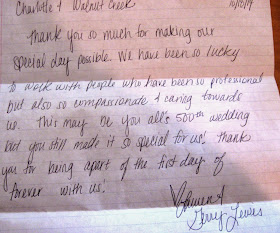 Charlotte & Walnut Creek 10/10/9
Thank you so much for making our
special day possible. We have been so lucky
to work with people who have been so professional
but also so compassionate & caring towards
us. This may be you all's 500th wedding
but you still made it so special for us! Thank
you for being apart of the first day of
forever with us!
& 
Gerry Lewis